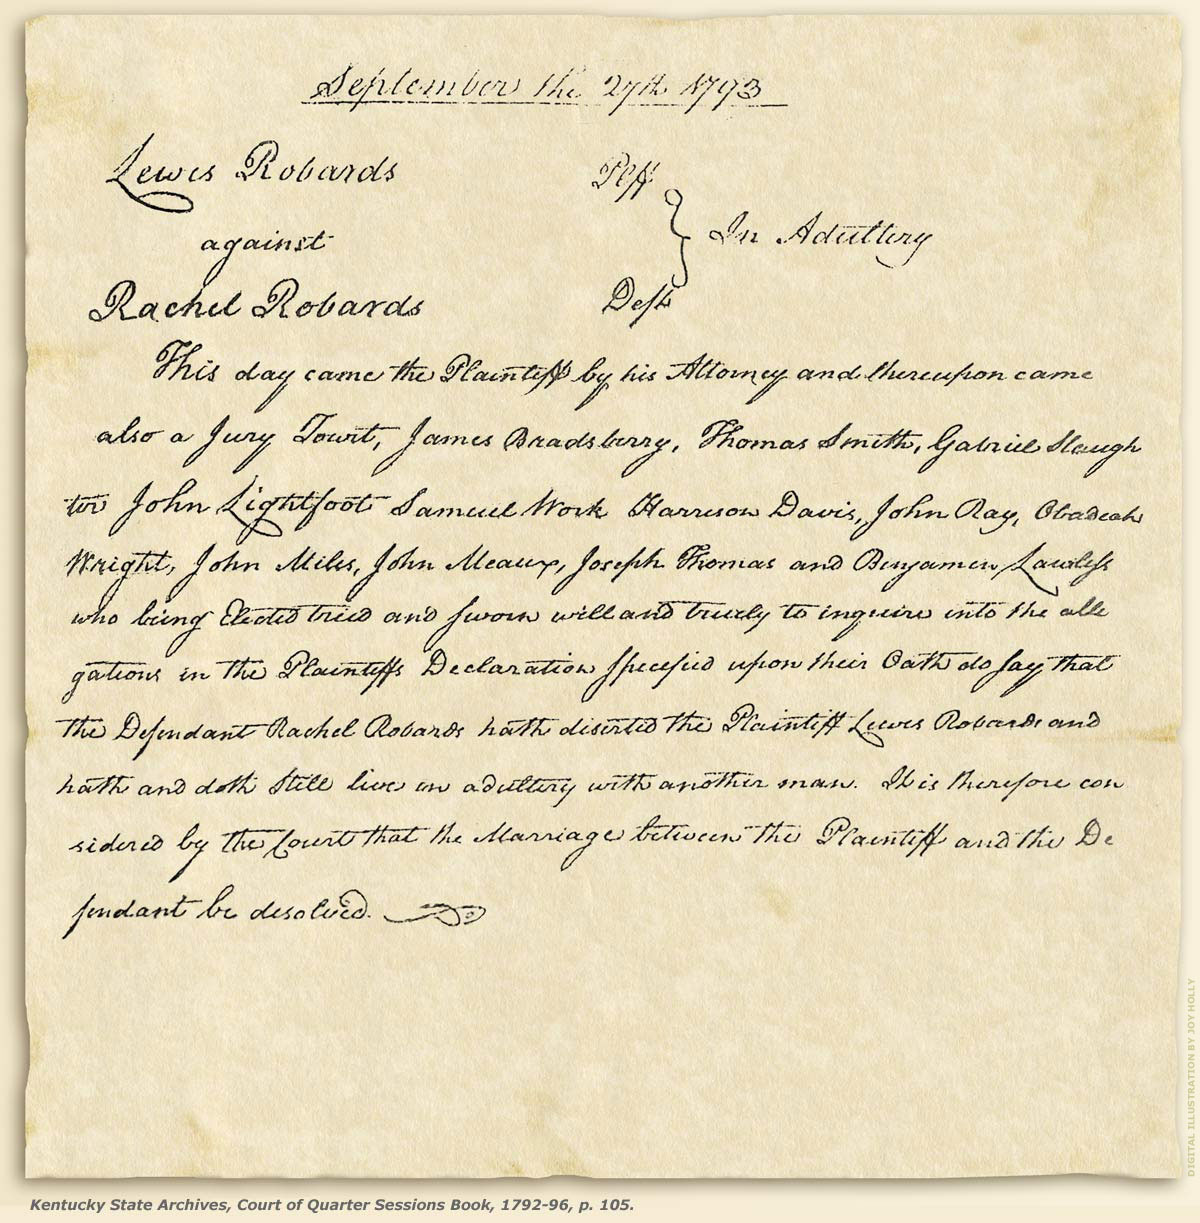 September the 27th 1793
Lewis Robards Plff
against In Adultery
Rachel Robards Deft
This day came the Plaintiff by his Attorney and thereupon came
also a Jury Towit, James Bradsberry, Thomas Smith, Gabriel Slaugh
ter John Lightfoot Samuel Work Harrison Davis, John Ray, Obadeah
Wright, John Miles, John Meaux, Joseph Thomas and Benjamin Lawless
who being Elected tried and sworn well and truely to inquire into the alle
gations in the Plaintiffs Declaration specefied upon their Oath do say that
the Defendant Rachel Robards hath deserted the Plaintiff Lewis Robards and
hath and doth Still live in adultery with another man. It is therefore con
sidered by the Court that the Marriage between the Plaintiff and the De
fendant be desolved.
Kentucky State Archives, Court of Quarter Sessions Book, 1792-96, p. 105.
DIGITAL ILLUSTRATION BY JOY HOLLY